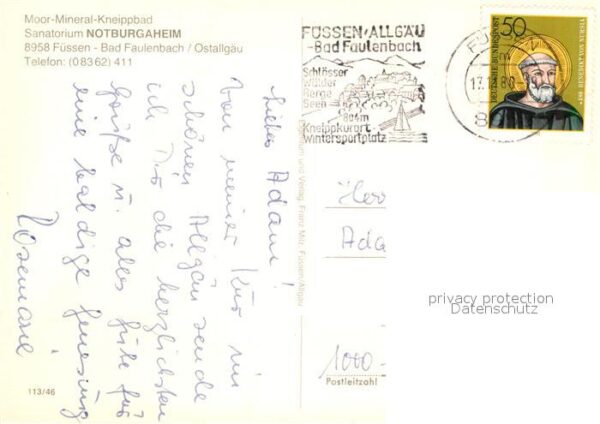 Moor-Mineral-Kneippbad
Sanatorium NOTBURGAHEIM
8958 Füssen - Bad Faulenbach / Ostallgäu
Telefon: (0 83 62) 411
Lieber Adam!
Von meiner Kur im
schönen Allgäu sende
ich Dir die herzlichsten
Grüße u. alles Gute für
eine baldige Genesung
Rosemarie
113/46
und Verlag Franz Milz, Füssen/Allgäu
FÜSSEN/ALLGÄU
-Bad Faulenbach
Schlösser
Wälder
Berge
Seen
804m
Kneippkurort
Wintersportplatz
FÜSSEN
8
50
DEUTSCHE BUNDESPOST
Herr
Ada
1000-
Postleitzahl
privacy protection
Datenschutz